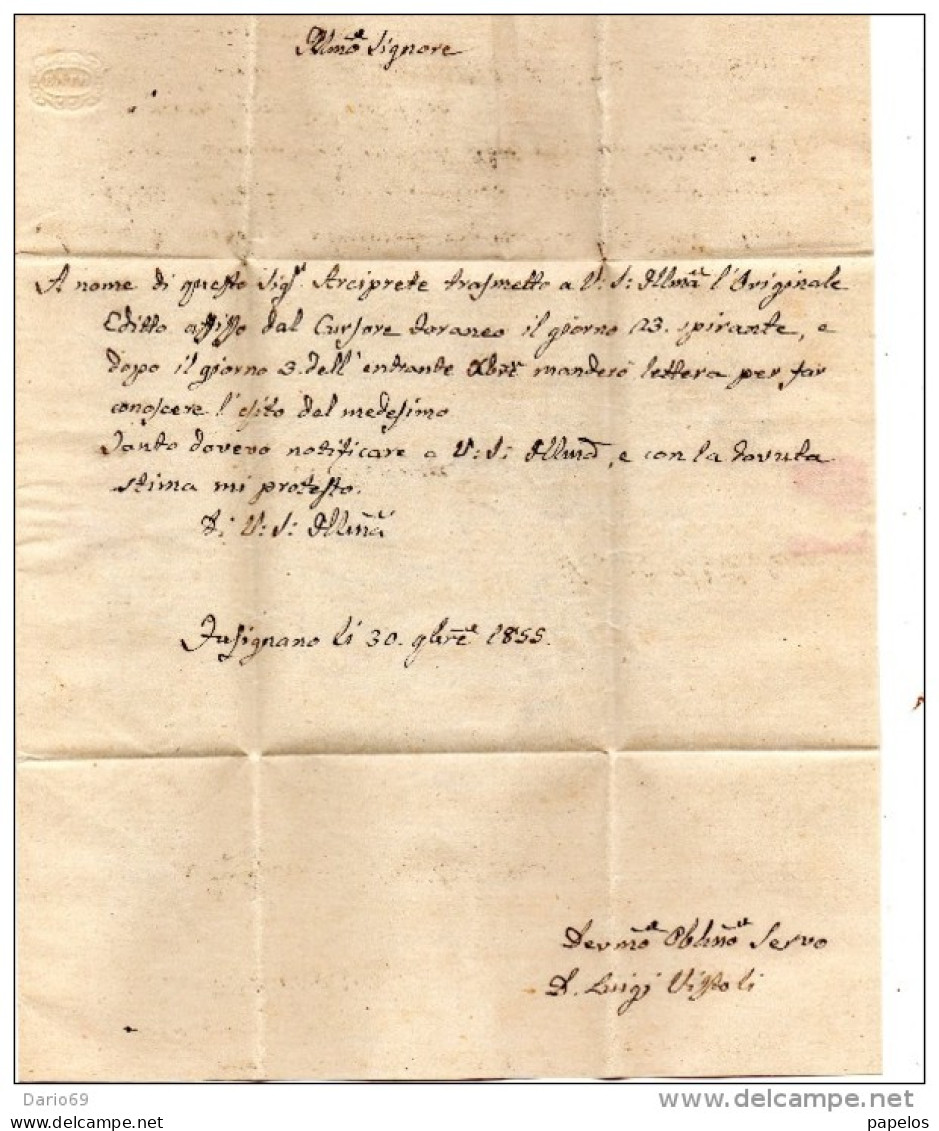 Illmo Signore
A nome di questo Sigr. Arciprete trasmetto a V: S: Illma l'Originale
Editto affisso dal Cursore foraneo il giorno 23. spirante, e
dopo il giorno 3. dell'entrante Xbre manderò lettera per far
conoscere l'esito del medesimo
Tanto dovevo notificare a V: S: Illma, e con la dovuta
stima mi protesto.
Di V: S: Illma
Fusignano li 30. 9bre 1855.
Devmo Obblmo Servo
D. Luigi
Dario69
www.delcampe.net
papelos